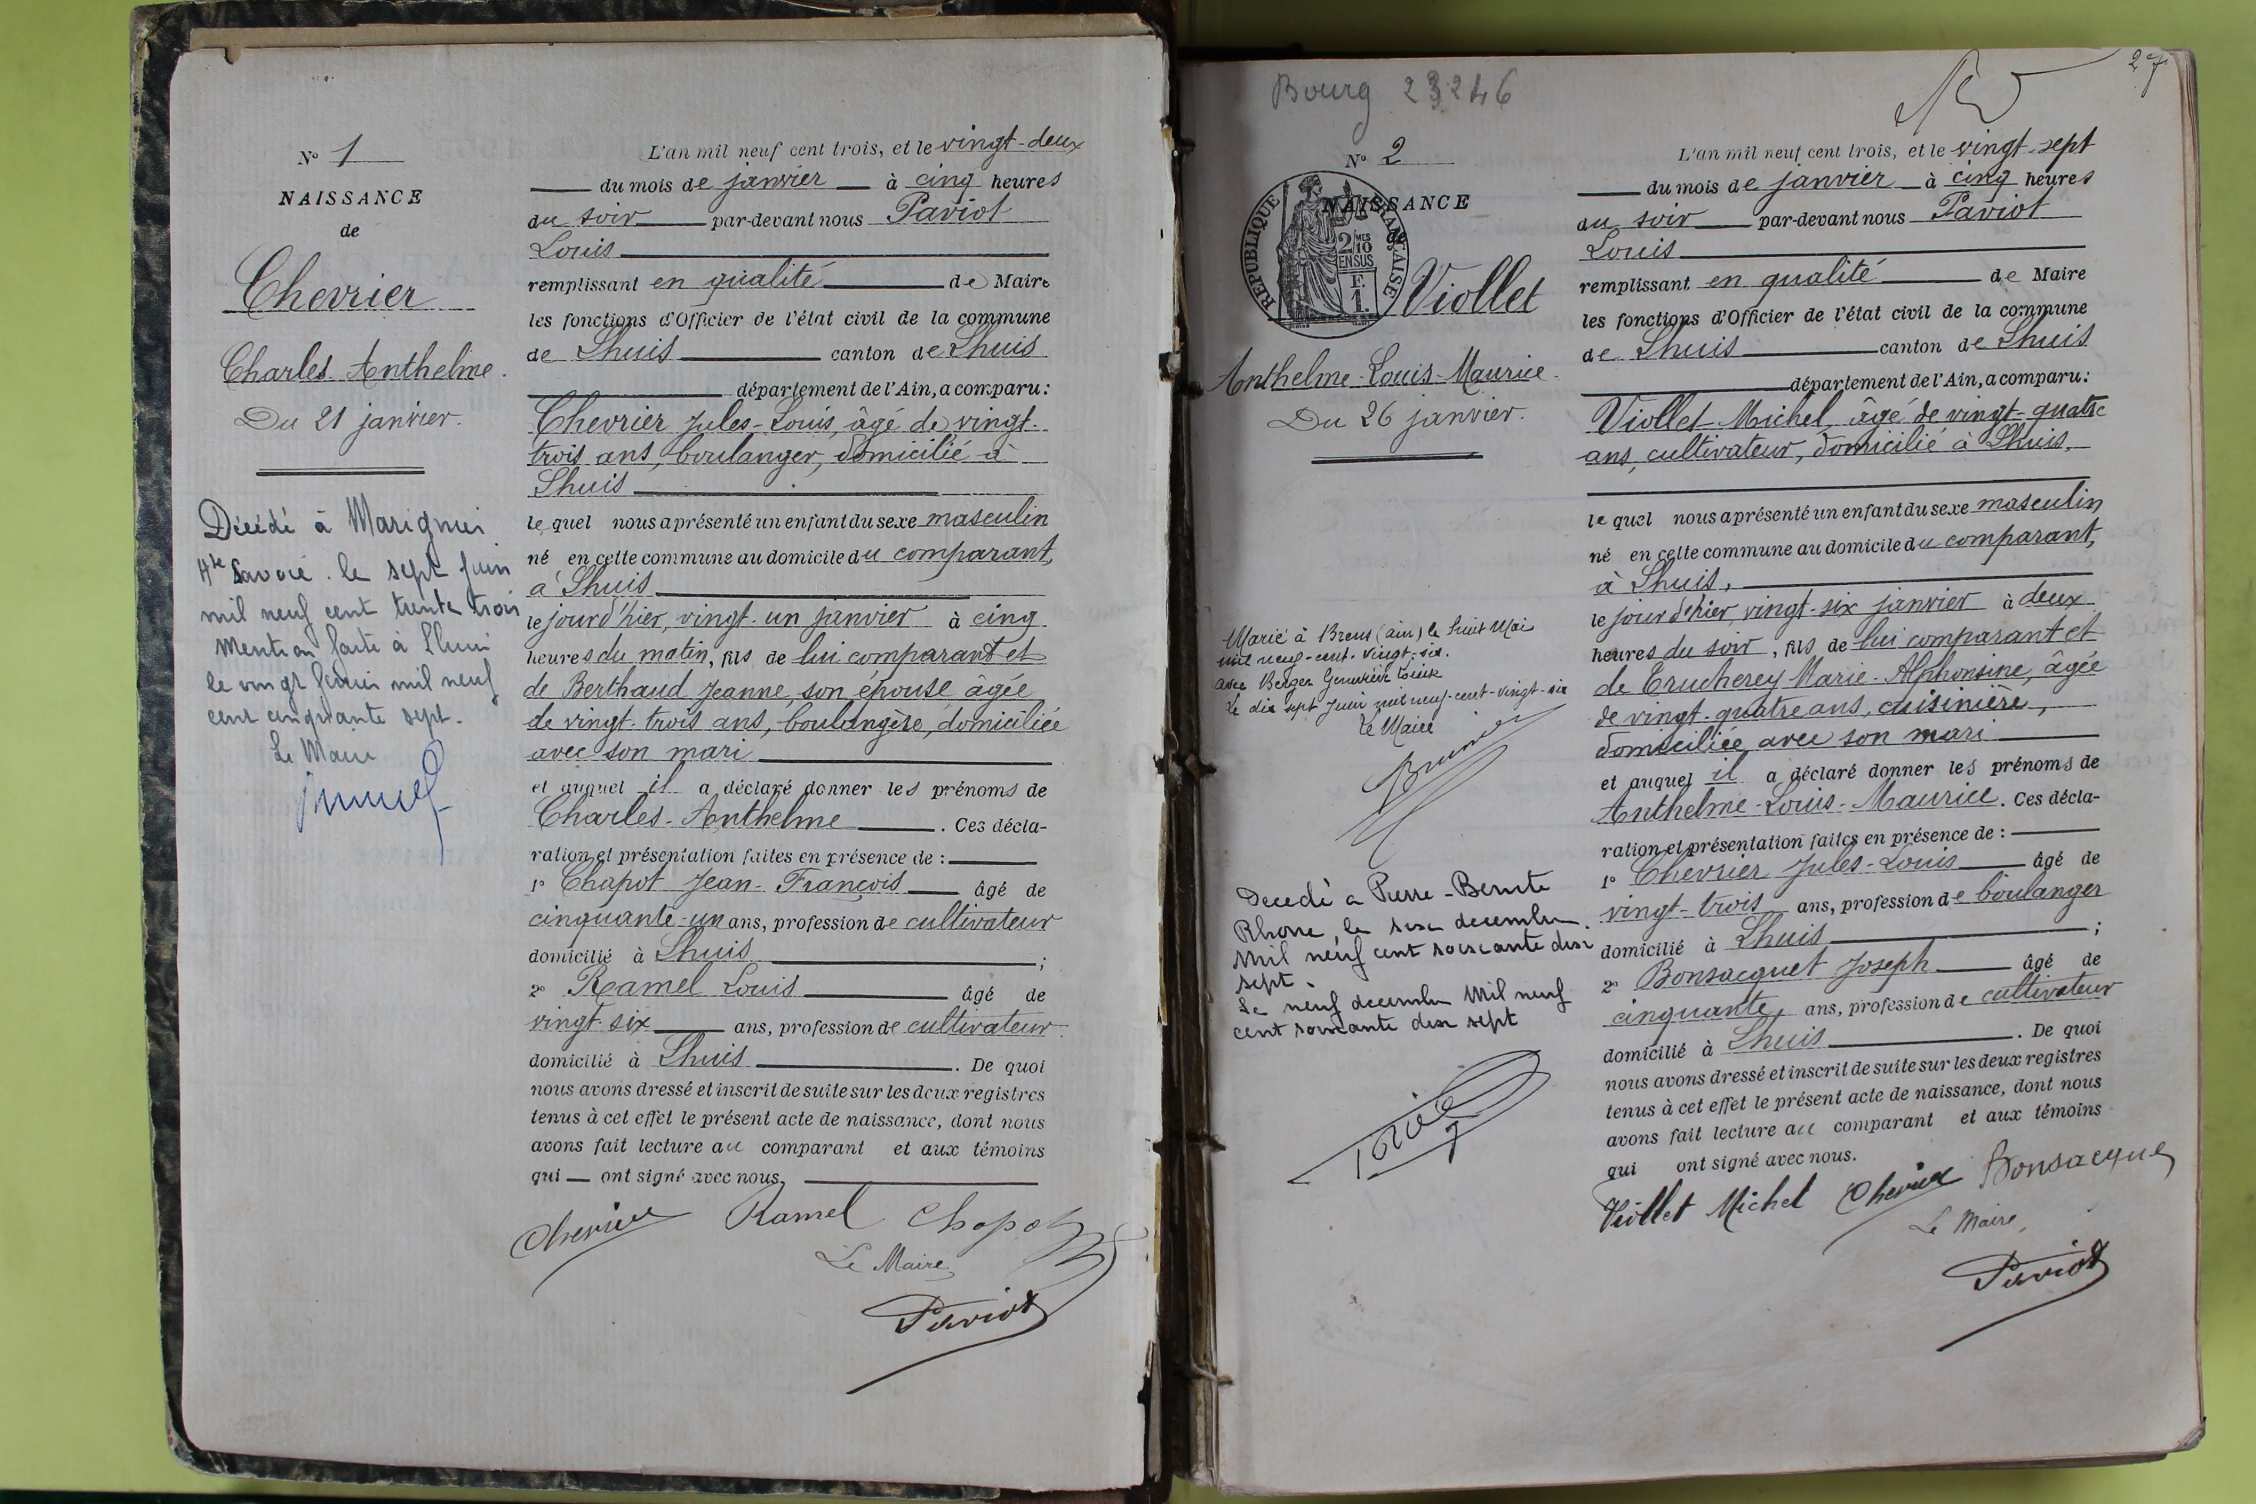 N° 1
NAISSANCE
de
Chevrier
Charles Anthelme.
Du 21 janvier.
Décédé à
Hte Savoie. le sept juin
mil neuf cent trente trois
Mention faite à Lhuis
le vingt février mil neuf
cent cinquante sept.
Le Maire
L'an mil neuf cent trois, et le vingt-deux
du mois de janvier à cinq heures
du soir par-devant nous Paviot
Louis
remplissant en qualité de Maire
les fonctions d'Officier de l'état civil de la commune
de Lhuis canton de Lhuis
département de l'Ain, a comparu:
Chevrier Jules-Louis, âgé de vingt-
trois ans, boulanger, domicilié à
Lhuis
le quel nous a présenté un enfant du sexe masculin
né en cette commune au domicile du comparant,
à Lhuis
le jour d'hier, vingt-un janvier à cinq
heures du matin, fils de lui comparant et
de Berthaud Jeanne, son épouse âgée
de vingt-trois ans, boulangère, domiciliée
avec son mari
et auquel il a déclaré donner les prénoms de
Charles-Anthelme. Ces décla-
ration et présentation faites en présence de :
1° Chapot Jean-François âgé de
cinquante-un ans, profession de cultivateur
domicilié à Lhuis ;
2° Ramel Louis âgé de
vingt-six ans, profession de cultivateur
domicilié à Lhuis. De quoi
nous avons dressé et inscrit de suite sur les deux registres
tenus à cet effet le présent acte de naissance, dont nous
avons fait lecture au comparant et aux témoins
qui ont signé avec nous.
Chevrier Ramel Chapot
Le Maire,
Paviot
27
Bourg 23246
N° 2
NAISSANCE
de
RÉPUBLIQUE FRANÇAISE
2/10 MES
EN SUS
F.
1.
Viollet
Anthelme-Louis-Maurice.
Du 26 janvier.
Marié à Brens (Ain) le huit Mai
mil neuf-cent-vingt-six.
avec Berger Geneviève Louise
Le dix sept Juin mil neuf-cent-vingt-six
Le Maire
Décédé à Pierre-Bénite
Rhône, le six décembre
Mil neuf cent soixante dix
sept.
Le neuf décembre Mil neuf
cent soixante dix sept
L'an mil neuf cent trois, et le vingt-sept
du mois de janvier à cinq heures
du soir par-devant nous Paviot
Louis
remplissant en qualité de Maire
les fonctions d'Officier de l'état civil de la commune
de Lhuis canton de Lhuis
département de l'Ain, a comparu:
Viollet Michel, âgé de vingt-quatre
ans, cultivateur, domicilié à Lhuis,
le quel nous a présenté un enfant du sexe masculin
né en cette commune au domicile du comparant,
à Lhuis,
le jour d'hier, vingt-six janvier à deux
heures du soir, fils de lui comparant et
de Trucherey Marie-Alphonsine, âgée
de vingt-quatre ans, cuisinière,
domiciliée avec son mari
et auquel il a déclaré donner les prénoms de
Anthelme-Louis-Maurice. Ces décla-
ration et présentation faites en présence de :
1° Chevrier Jules-Louis âgé de
vingt-trois ans, profession de boulanger
domicilié à Lhuis ;
2° Bonsacquet Joseph âgé de
cinquante ans, profession de cultivateur
domicilié à Lhuis. De quoi
nous avons dressé et inscrit de suite sur les deux registres
tenus à cet effet le présent acte de naissance, dont nous
avons fait lecture au comparant et aux témoins
qui ont signé avec nous.
Viollet Michel Chevrier Bonsacquet
Le Maire,
Paviot